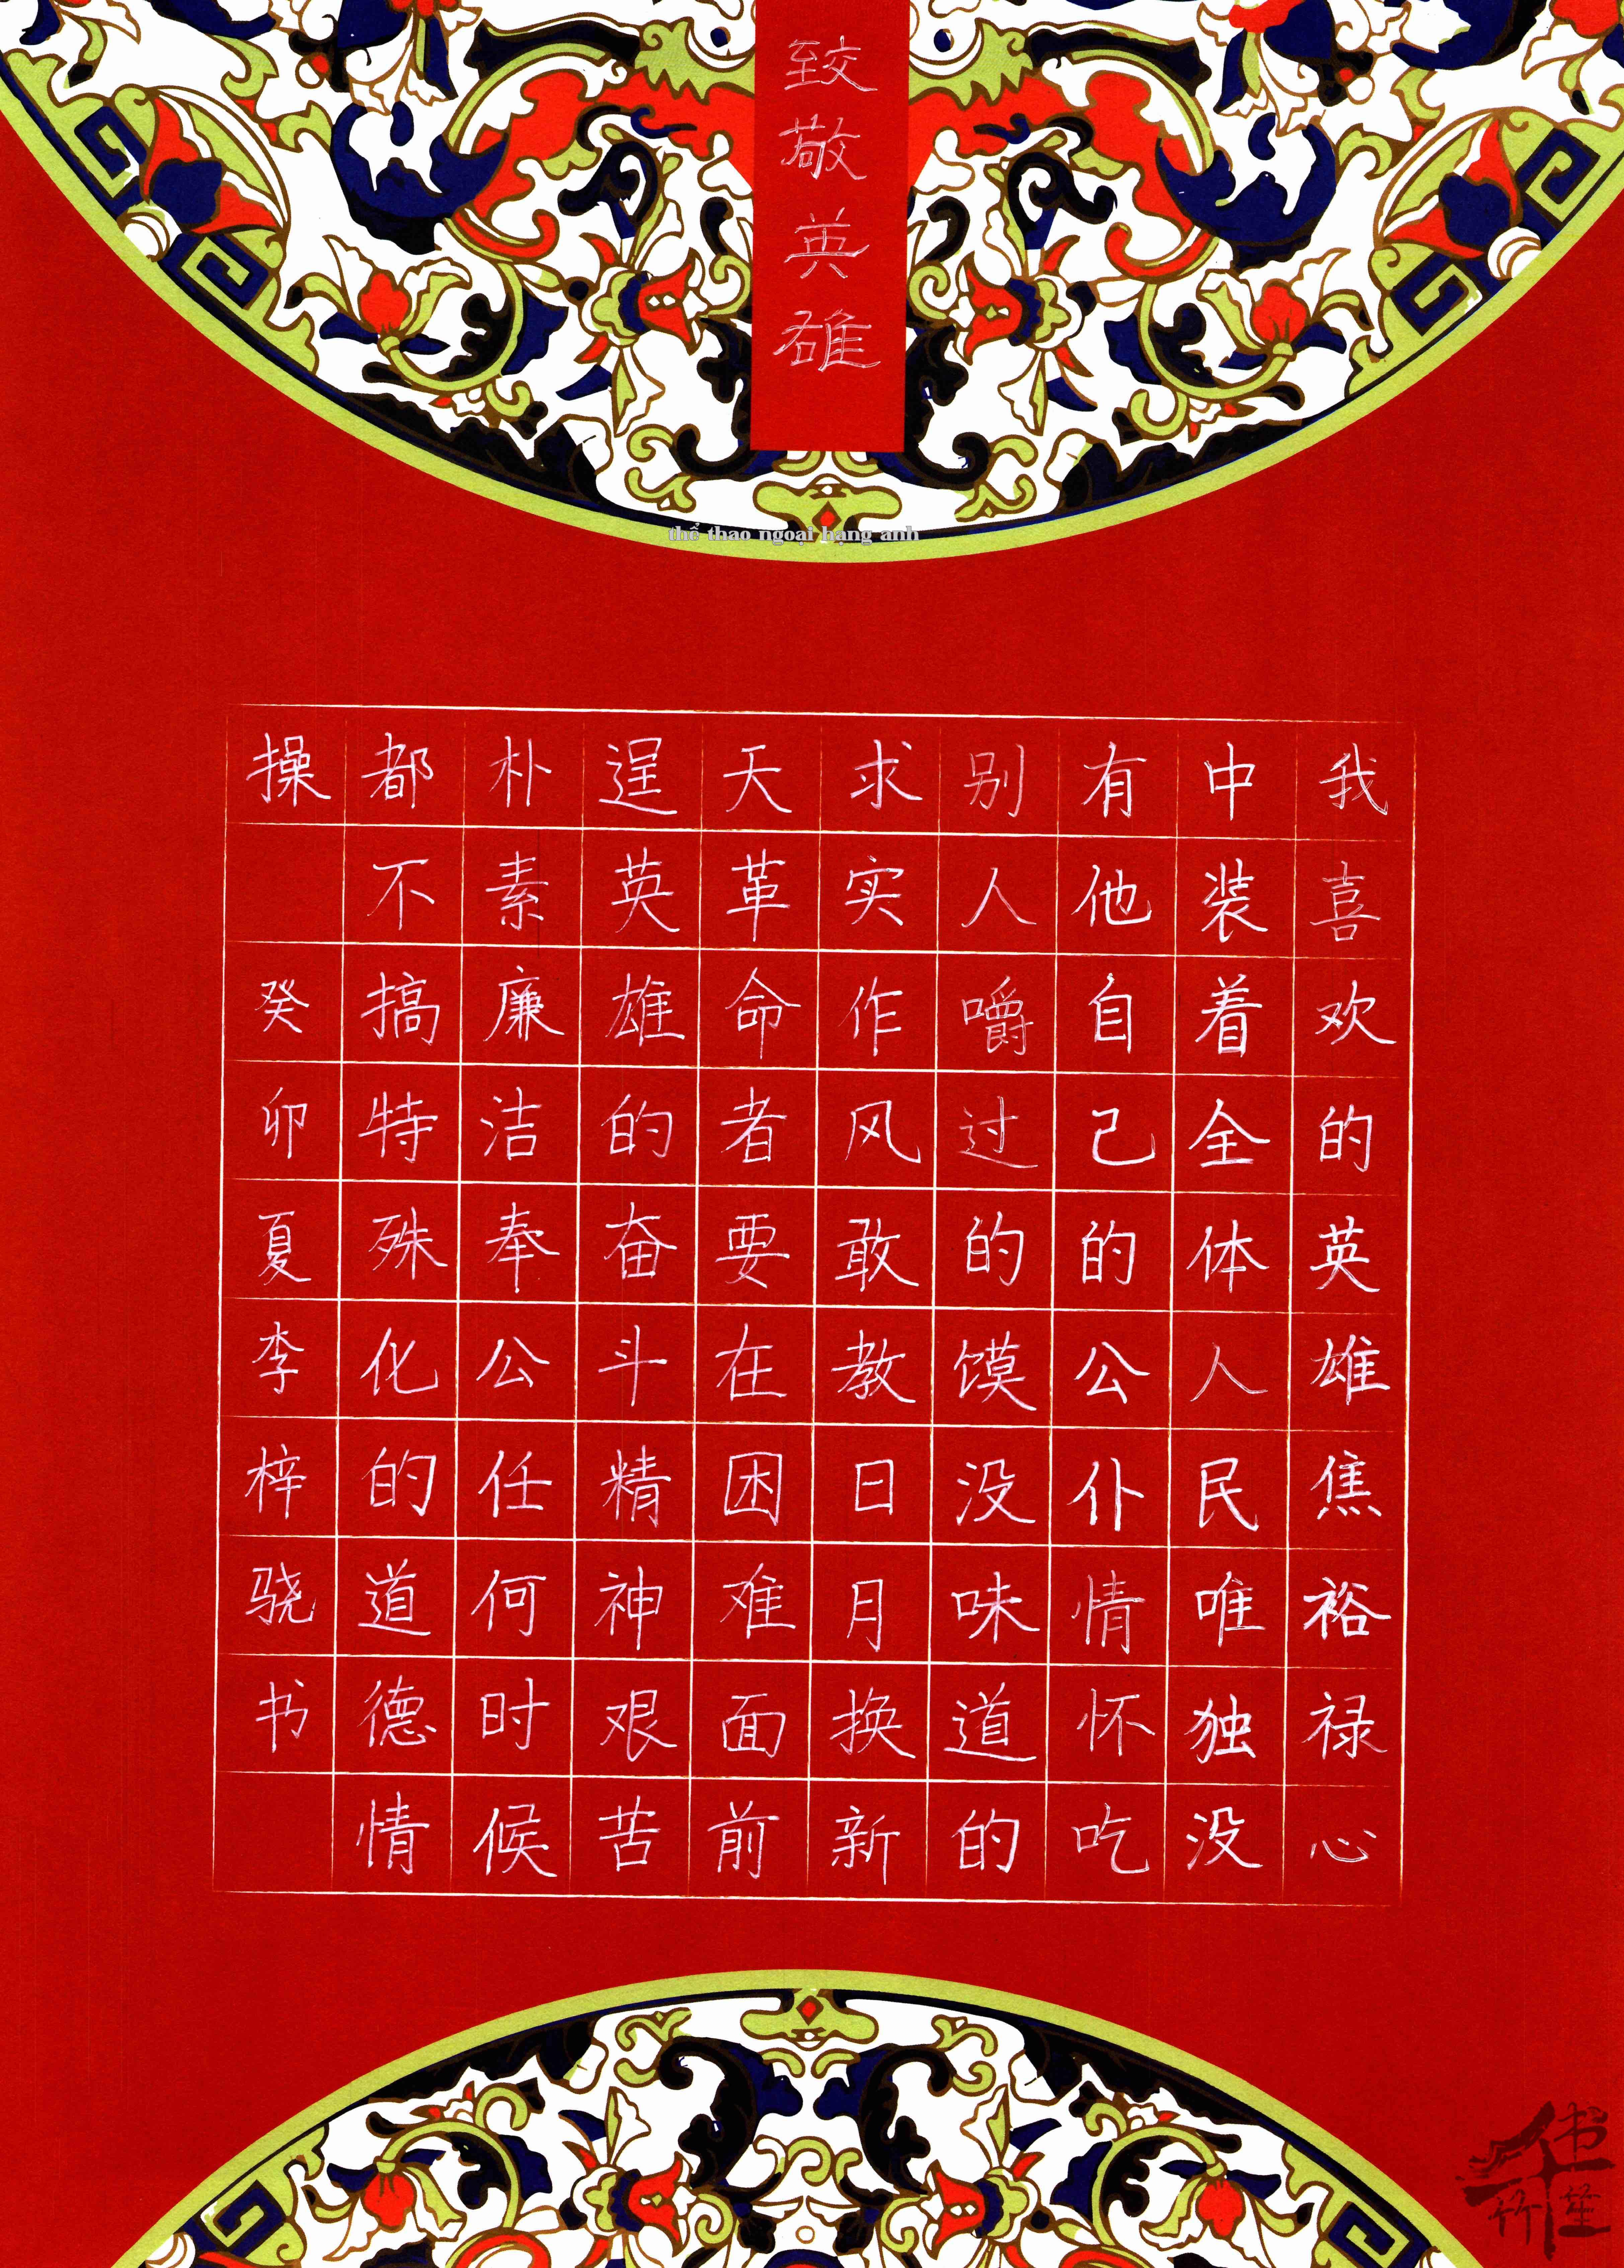 致敬英雄
thể thao ngoại hạng anh
我喜欢的英雄焦裕禄心
中装着全体人民唯独没
有他自己的公仆情怀吃
别人嚼过的馍没味道的
求实作风敢教日月换新
天革命者要在困难面前
逞英雄的奋斗精神艰苦
朴素廉洁奉公任何时候
都不搞特殊化的道德情
操
癸卯夏李梓骁书